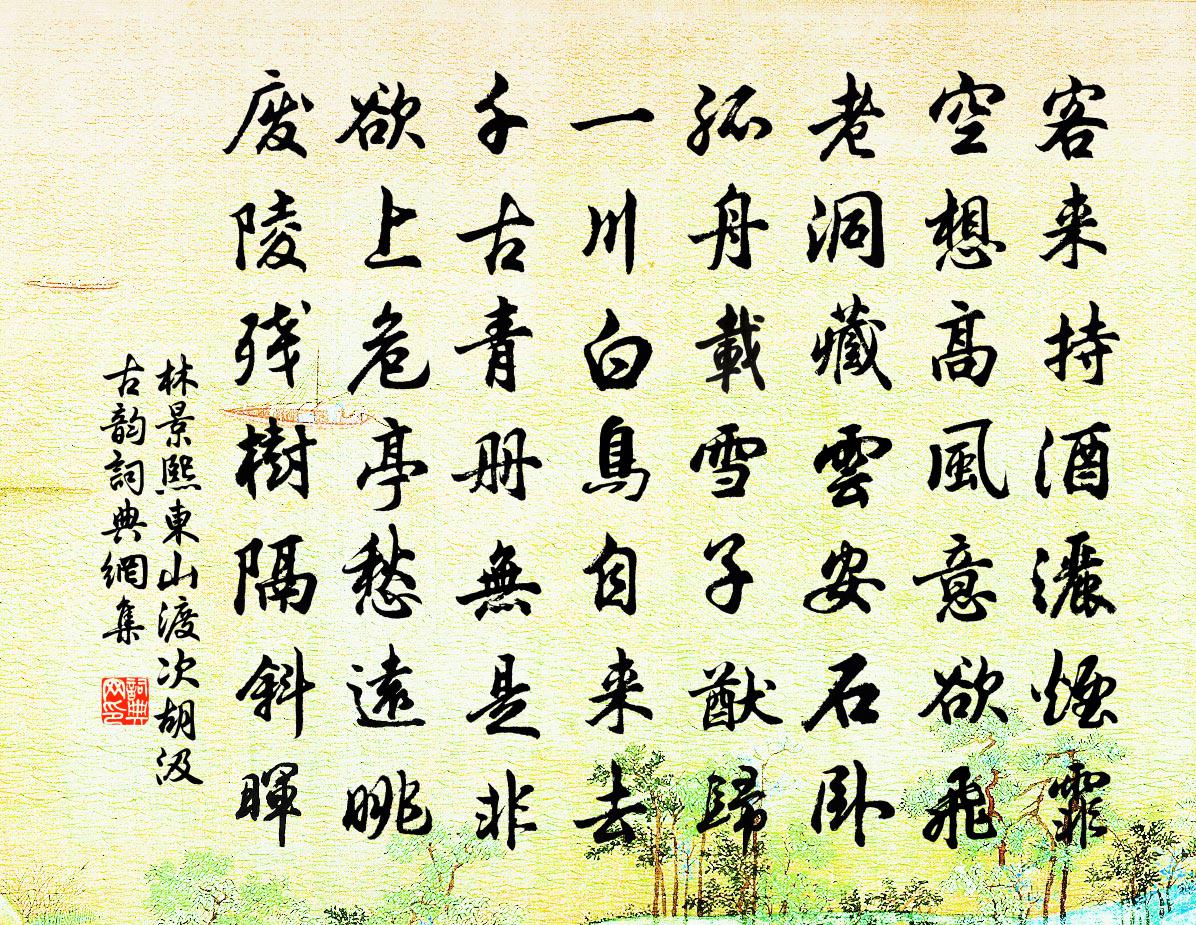 客来持酒灑煙霏
空想高風意欲飛
老洞藏雲安石卧
孤舟載雪子猷歸
一川白鳥自来去
千古青册無是非
欲上危亭愁遠眺
廢陵残樹隔斜暉
林景熙東山渡次胡汲
古韵詞典網集
詞典
网印